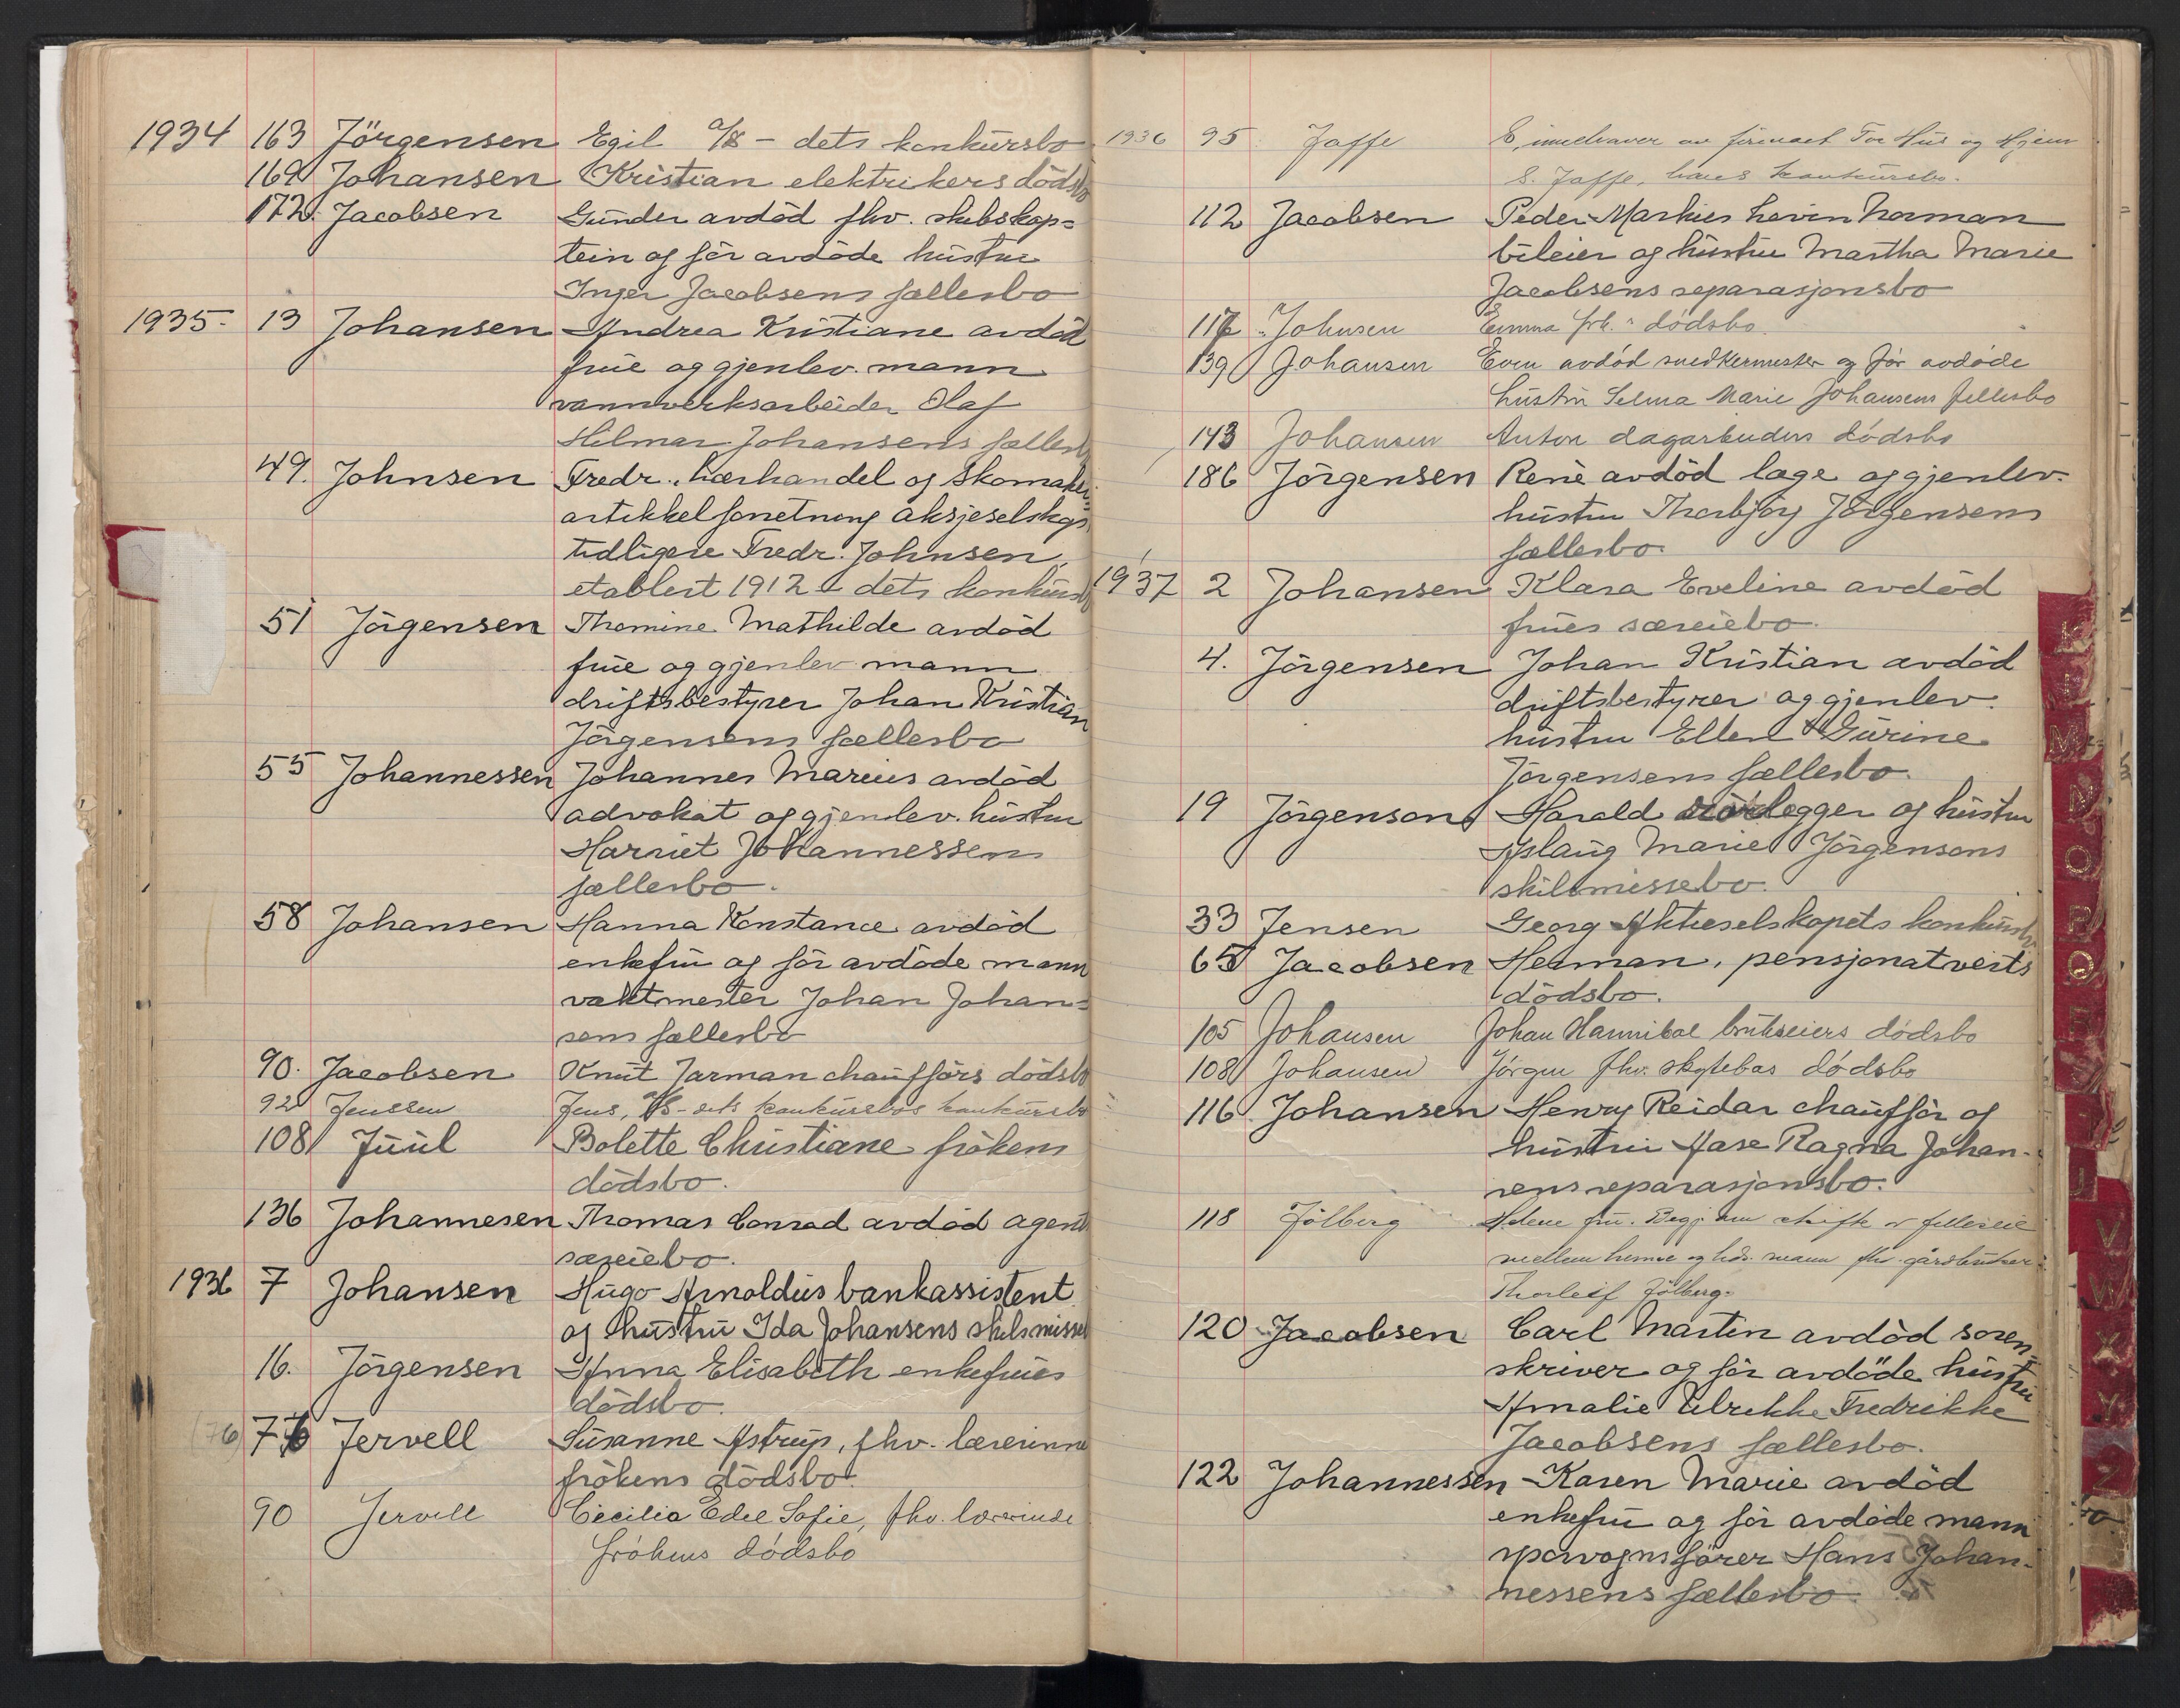 1934 163 Jörgensen Egil A/S – dets konkursbo
169 Johansen Kristian elektrikers dödsbo
172. Jacobsen Gunder avdöd fhv. skibskap=
tein og för avdöde hustru
Inger Jacobsens fællesbo
1935. 13 Johansen Andrea Kristiane avdöd
frue og gjenlev. mann
vannverksarbeider Olaf
Hilmar Johansens fællesbo
49. Johnsen Fredr. lærhandel og skomaker=
artikkelforretning aksjeselskap,
tidligere Fredr. Johnsen,
etablert 1912 – dets konkursbo
51 Jörgensen Thomine Mathilde avdöd
frue og gjenlev mann
driftsbestyrer Johan Kristian
Jörgensens fællesbo
55 Johannessen Johannes Marius avdöd
advokat og gjenlev. hustru
Harriet Johannessens
fællesbo.
58 Johansen Hanna Konstance avdöd
enkefru og för avdöde mann
vaktmester Johan Johan=
sens fællesbo
90. Jacobsen Knut Jarman chaufförs dödsbo
92 Jenssen Jens, A/S – dets konkursbos konkursbo
108 Juul Bolette Christiane frökens
dödsbo.
136 Johannesen Thomas Conrad avdöd agent
særeiebo.
1936 7 Johansen Hugo Arnoldus bankassistent
og hustru Ida Johansens skilsmisse
16. Jörgensen Anna Elisabeth enkefrues
dödsbo.
(76) 76 Jervell Susanne Astrup, fhv. lærerinne
frökens dödsbo.
90 Jervell Cecilia Edle Sofie, fhv. lærerinde
frökens dödsbo
1936 95 Jaffe E, innehaver av firmaet For Hus og Hjem
S. Jaffe, hans konkursbo.
112 Jacobsen Peder Markus Norman
bileier og hustru Martha Marie
Jacobsens separasjonsbo
117 Johnsen Emma frk. dödsbo.
139 Johansen Even avdöd snedkermester og för avdöde
hustru Selma Marie Johansens fellesbo
143 Johansen Anton dagarbeiders dödsbo
186 Jörgensen René avdöd læge og gjenlev.
hustru Thorbjörg Jörgensens
fællesbo.
1937 2 Johansen Klara Eveline avdöd
frues særeiebo.
4. Jörgensen Johan Kristian avdöd
driftsbestyrer og gjenlev.
hustru Ellen Gurine
Jörgensens fællesbo.
19 Jörgenson Harald rörlegger og hustru
Aslaug Marie Jörgensons
skilsmissebo.
33 Jensen Georg Aktieselskapets konkursbo
65 Jacobsen Herman, pensjonatverts
dödsbo.
105 Johansen Johan Hannibal brukseiers dödsbo
108 Johansen Jörgen fhv. skytebas dödsbo
116 Johansen Henry Reidar chaufför og
hustru Aase Ragna Johan-
sens separasjonsbo.
118 Jölberg Helene fru. Begj. om skifte av felleseie
mellem henne og hds. mann fhv. gårdbruker
Thorleif Jölberg.
120 Jacobsen Carl Martin avdöd soren=
skriver og för avdöde hustru
Amalie Ulrikke Fredrikke
Jacobsens fællesbo.
122 Johannessen Karen Marie avdöd
enkefru og för avdöde mann
sporvognsförer Hans Johan-
nessens fællesbo
K
L
M
N
O
P
Q
R
S
T
U
V
W
X
Y
Z